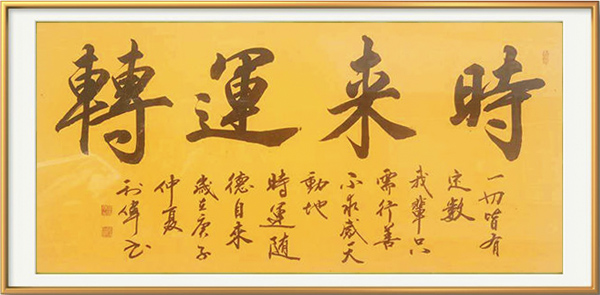 時来運轉
一切皆有
定數
我輩只
需行善
不求感天
動地
時運随
德自来
歲在庚子
仲夏
利偉书